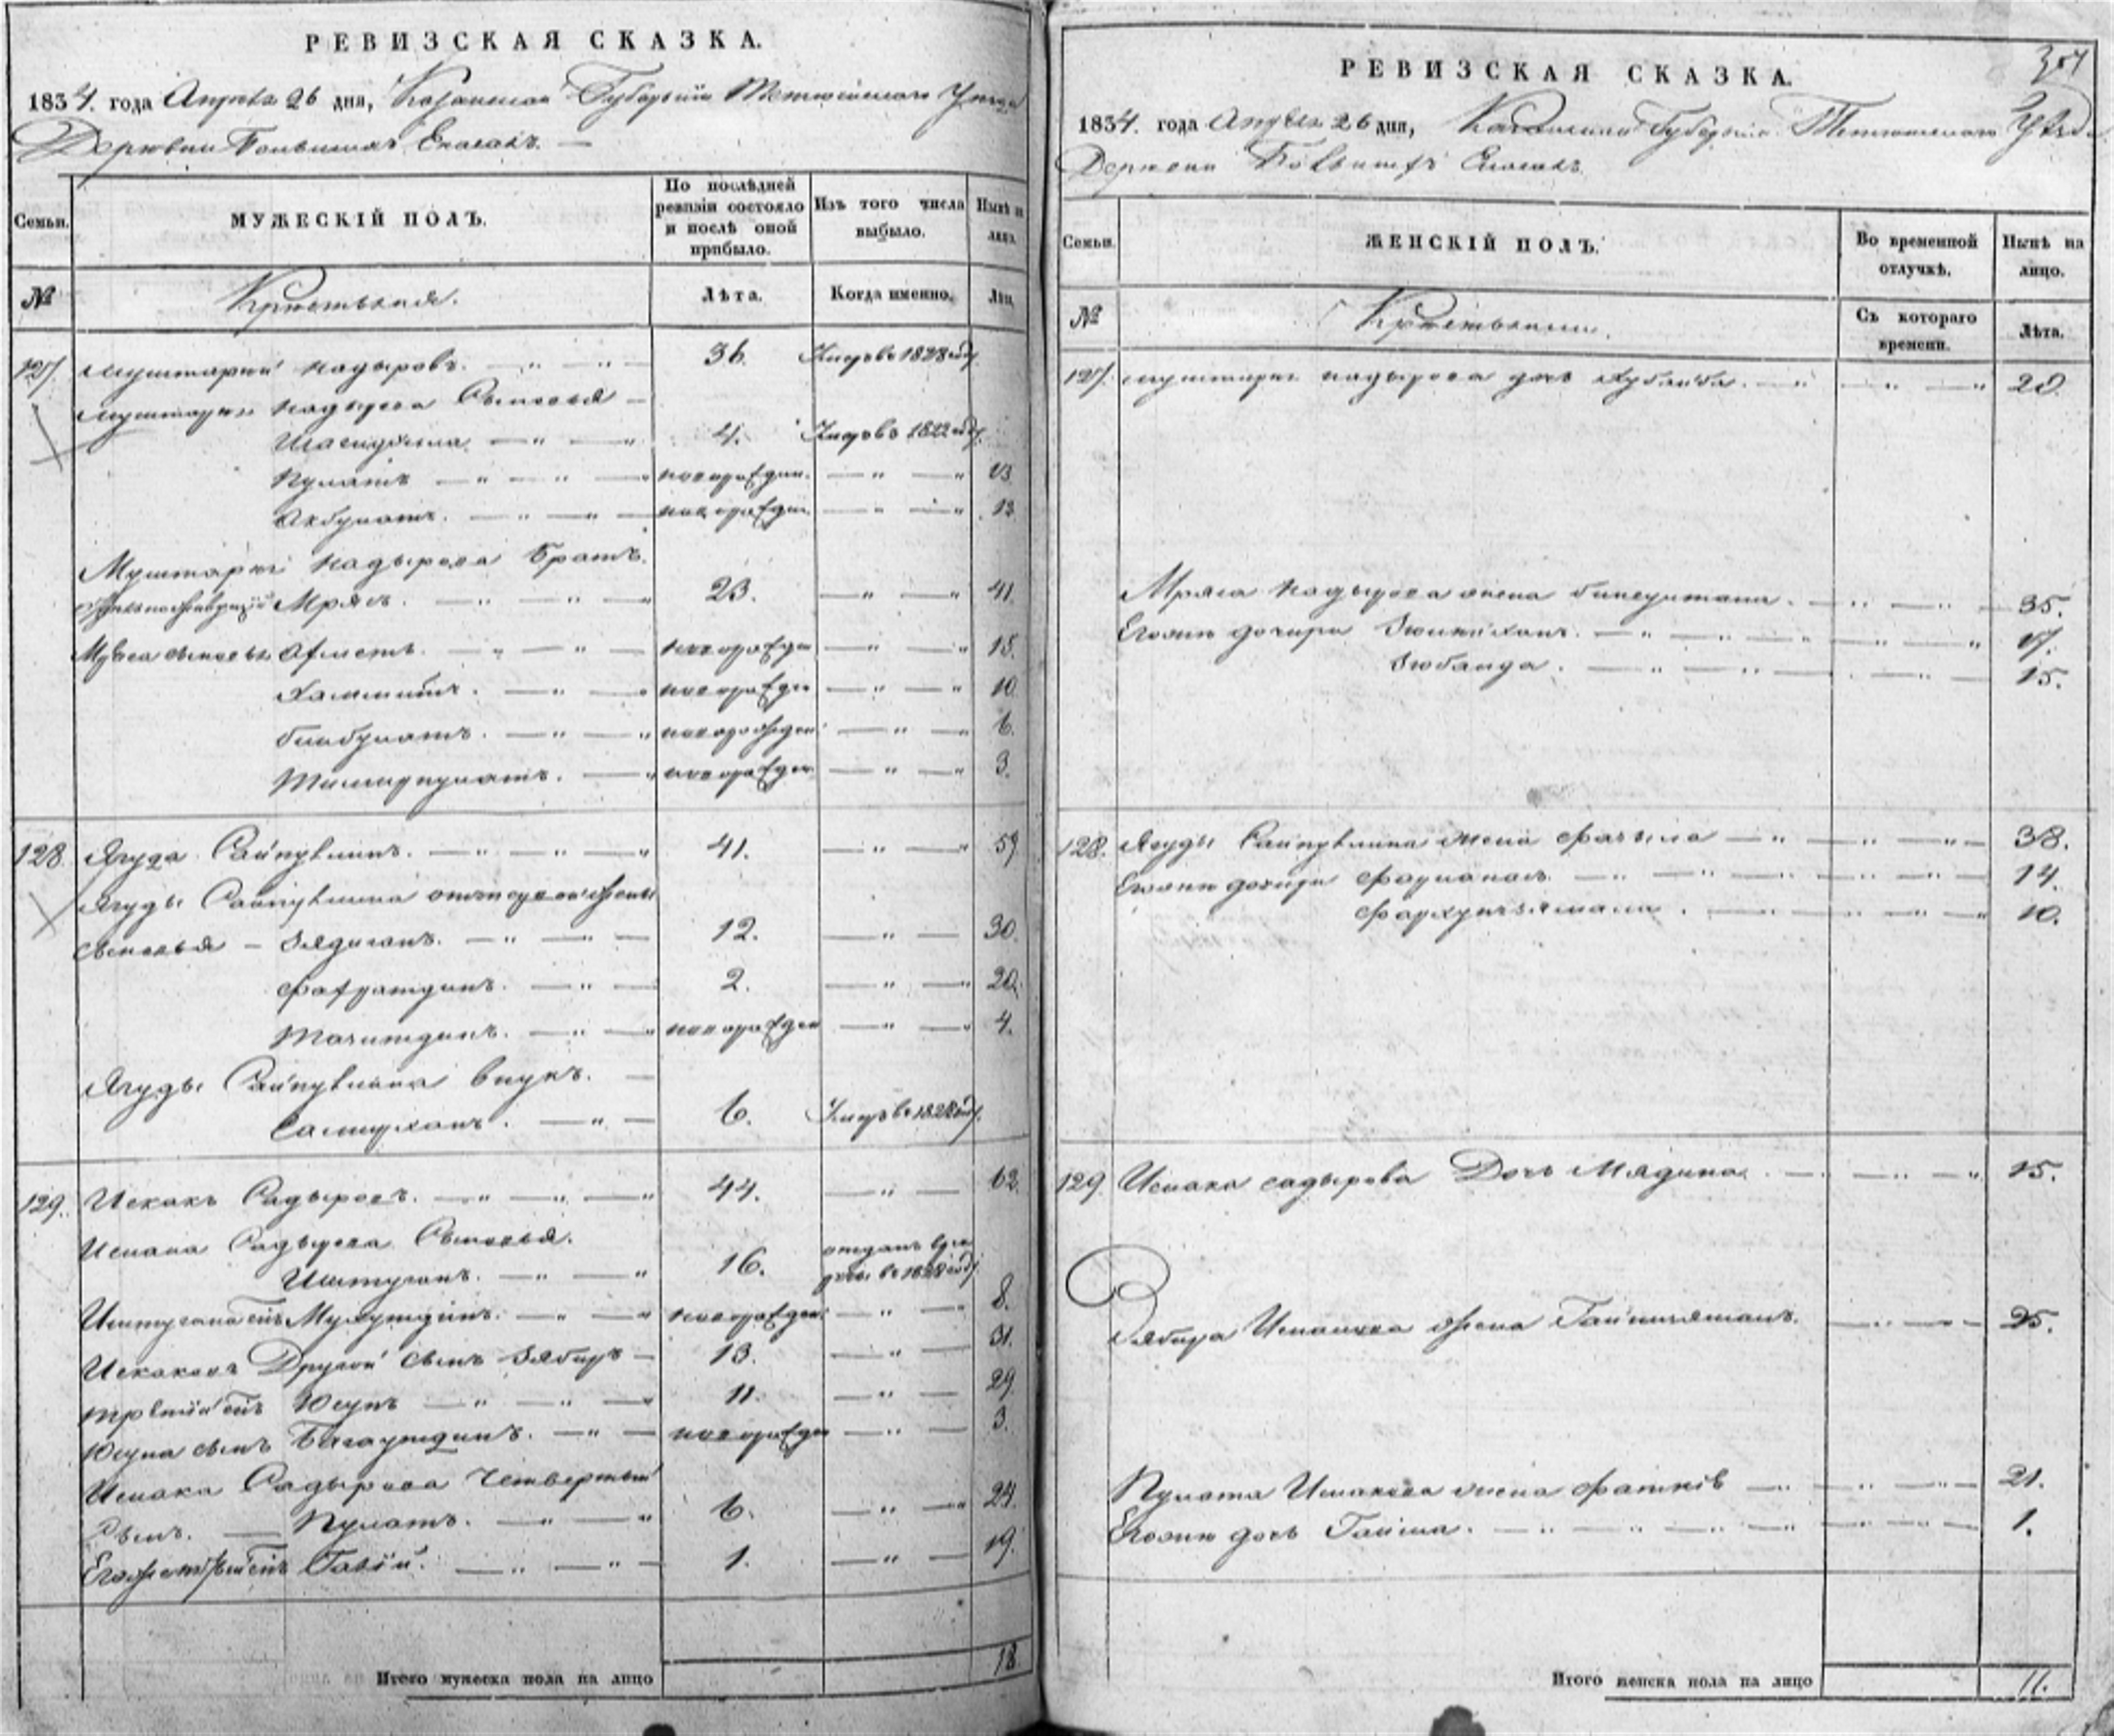 РЕВИЗСКАЯ СКАЗКА.
1834. года Апреля 26 дня, Казанской Губернии Тетюшского Уезда
Деревни Большихъ
Семьи.
МУЖЕСКІЙ ПОЛЪ.
По послѣдней ревизіи состояло и послѣ оной прибыло.
Изъ того числа выбыло.
Нынѣ на лицо.
№
Крестьяня.
Лѣта.
Когда именно.
Лѣта.
127. Муштарей Надыровъ. 36. Умеръ въ 1828 году.
Муштарея Надырова Сыновья
4. Умеръ въ 1822 году.
Пулатъ новорожден. 13
Акбулатъ. новорожден. 12
Муштарея Надырова братъ.
Мрясъ. 23. 41.
Мряса сыновья Ахметъ. новорожден 15.
новорожден 10
Бикбулатъ. новорожден 6.
Тимирпулатъ. новорожден 3.
128. Ягуда Сайпулинъ. 41. 59
Ягуды Сайпулина отъ первой жены
сыновья – Зядиганъ. 12. 30.
Фахратдинъ. 2. 20.
Тазитдинъ. новорожден 4.
Ягуды Сайпулина внукъ.
6. Умеръ въ 1828 году.
129. Искакъ Садыровъ. 44. 62
Искака Садырова Сыновья.
Иштуганъ. 16. отданъ въ рекруты въ 1828 году
Иштугана сынъ Мухутдинъ. новорожден. 8.
Искаковъ Другой сынъ Зябиръ 13. 31.
третій сынъ Юсупъ 11. 29.
Юсупа сынъ Багаутдинъ. новорожден 3.
Искака Садырова четвертый
сынъ. Пулатъ. 6. 24.
Егожъ пятый сынъ Габій. 1. 19.
Итого мужеска пола на лицо 18
РЕВИЗСКАЯ СКАЗКА.
1834. года Апреля 26 дня, Казанской Губернии Тетюшского Уезда
Деревни Большихъ
Семьи.
ЖЕНСКІЙ ПОЛЪ.
Во временной отлучкѣ.
Нынѣ на лицо.
№
Крестьянки.
Съ котораго времени.
Лѣта.
127. Муштарея Надырова дочь Хубанба. 20.
Мряса Надырова жена 35.
Егожъ дочери 17.
Зюбаида. 15.
128. Ягуды Сайпулина жена 38.
Егожъ дочери 14.
10.
129. Искака Садырова Дочь Мядина. 15.
Зябира Искакова жена 25.
Пулата Искакова жена 21.
Егожъ дочь Гайша. 1.
Итого женска пола на лицо 11.